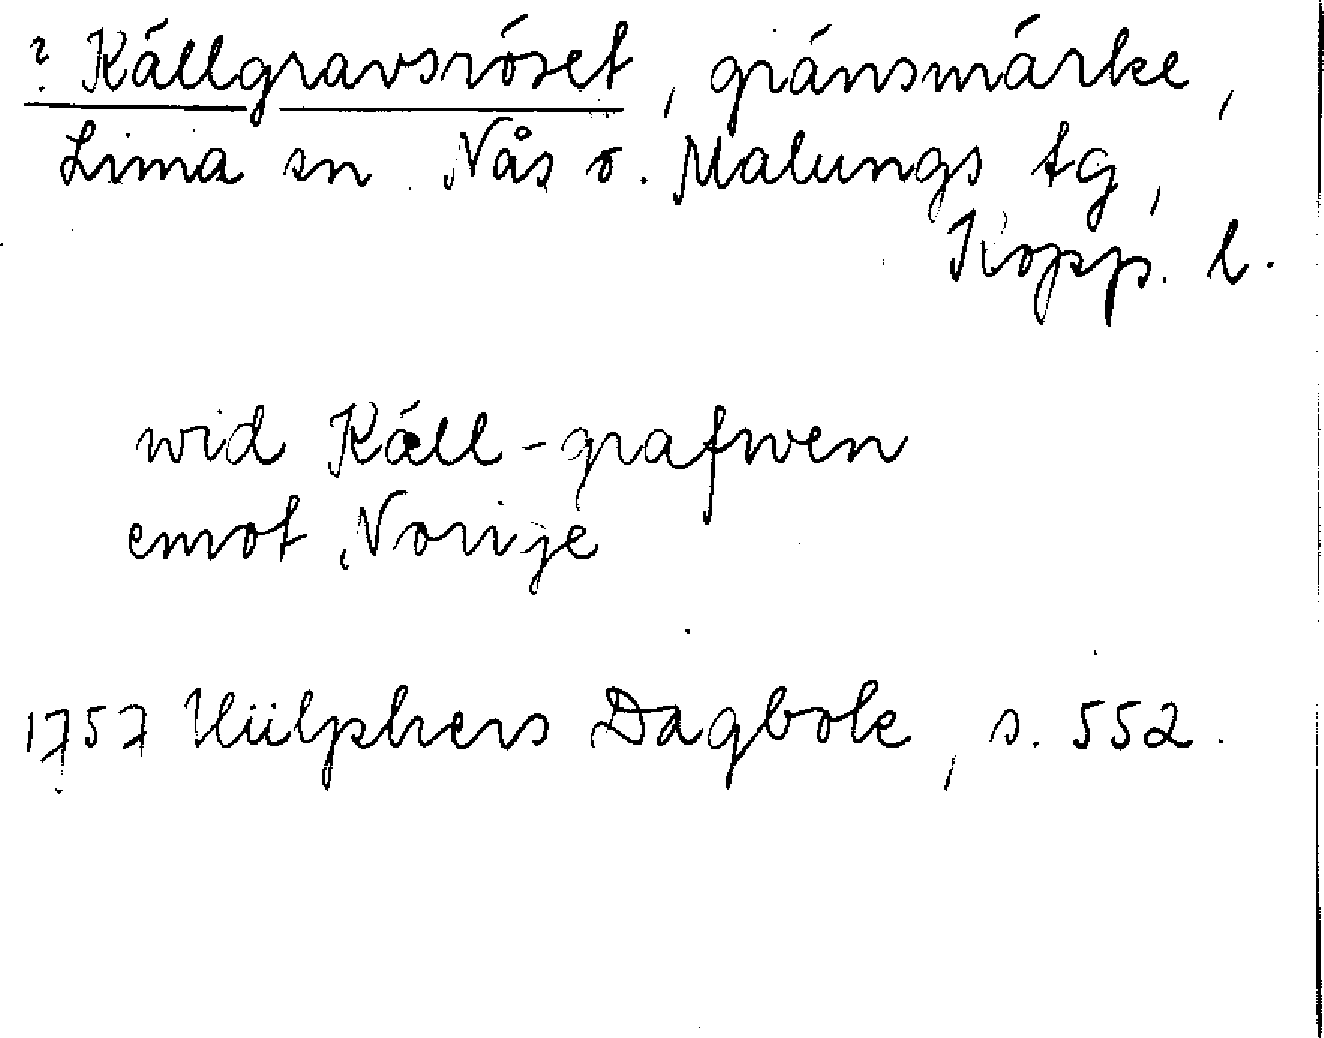 ? Källgravsröset, gränsmärke,
Lima sn Nås o. Malungs tg,
Kopp. l.
wid Käll-grafwen
emot Norrije
1757 Hülphers Dagbok, s. 552.